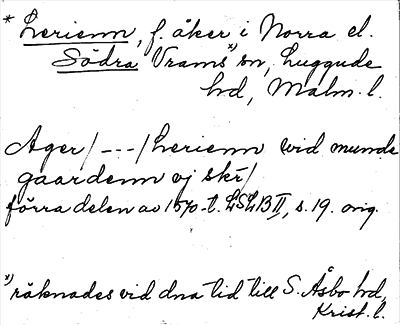 * Lerienn, f. åker i Norra el.
Södra Vrams *) sn, Luggude
hd, Malm. l.
Ager / --- / Lerienn vid munde
gaardenn vj skr/
förra delen av 1570-t. LSLB II, s. 19. orig.
*) räknades vid dna tid till S. Åsbo hd,
Krist. l.